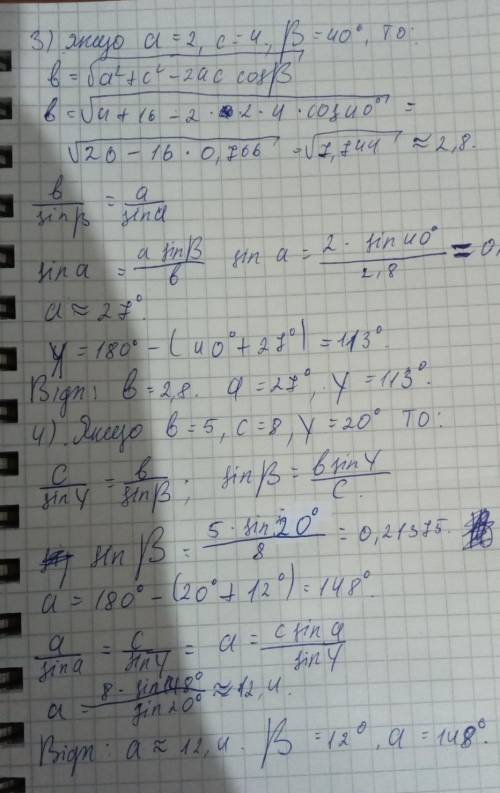 3) Якщо a=2, c=4, β=40°, то:
b=√a²+c²-2ac cosβ
b=√4+16-2·2·4·cos40° =
√20-16·0,766 =√7,744 ≈2,8.
b/sinβ = a/sina
sin a = a sinβ/b sin a = 2·sin40°/2,8 = 0,
a≈27°.
γ=180°-(40°+27°)=113°
Відп: b=2,8. a=27°, γ=113°.
4) Якщо b=5, c=8, γ=20° то:
c/sinγ = b/sinβ; sinβ = b sinγ/c.
sinβ = 5·sin20°/8 = 0,21375.
a=180°-(20°+12°)=148°.
a/sina = c/sinγ = a= c sina/sinγ
a= 8·sin148°/sin20° ≈12,4.
Відп: a≈12,4. β=12°, a=148°.